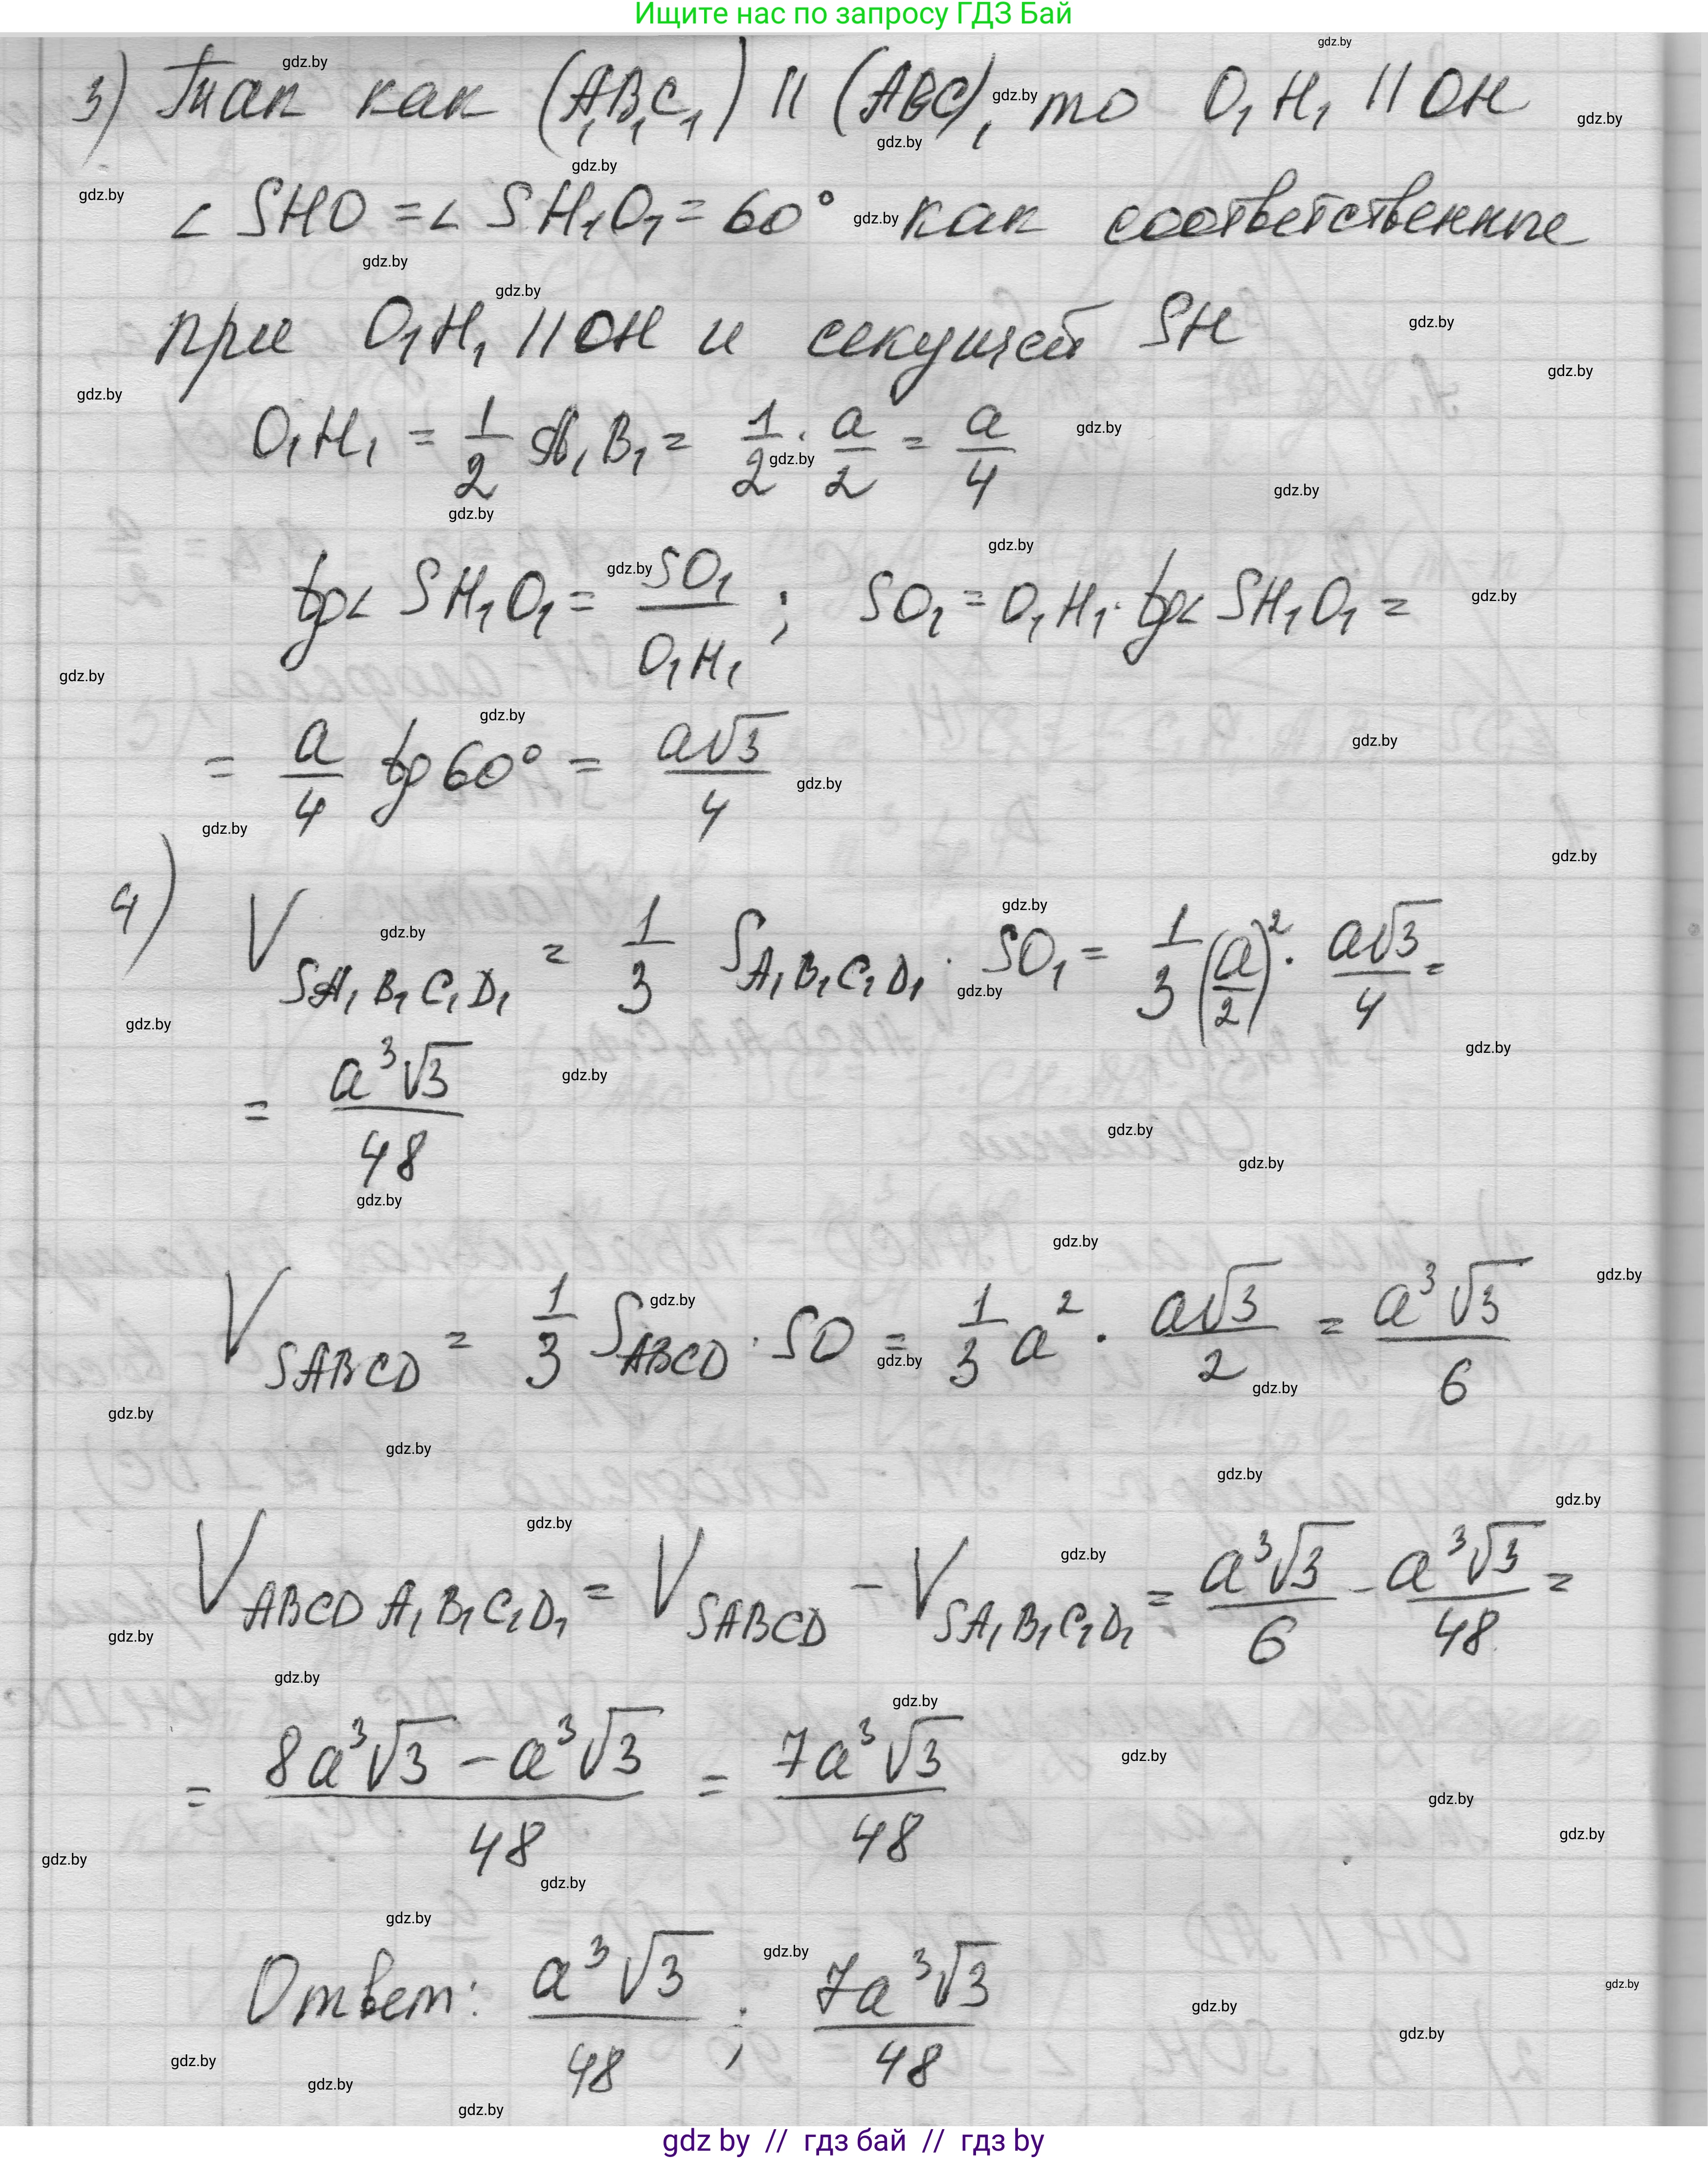 Ищите нас по запросу ГДЗ Бай
3) Так как (A₁B₁C₁) || (ABC), то O₁H₁ || OH
∠ SHO = ∠ SH₁O₁ = 60° как соответственные
при O₁H₁ || OH и секущей SH
O₁H₁ = 1/2 A₁B₁ = 1/2 · a/2 = a/4
tg∠ SH₁O₁ = SO₁/O₁H₁ ; SO₁ = O₁H₁ · tg∠ SH₁O₁ =
= a/4 tg 60° = a√3/4
4) V SA₁B₁C₁D₁ = 1/3 S A₁B₁C₁D₁ · SO₁ = 1/3 (a/2)² · a√3/4 =
= a³√3/48
V SABCD = 1/3 S ABCD · SO = 1/3 a² · a√3/2 = a³√3/6
V ABCDA₁B₁C₁D₁ = V SABCD − V SA₁B₁C₁D₁ = a³√3/6 − a³√3/48 =
= (8a³√3 − a³√3)/48 = 7a³√3/48
Ответ: a³√3/48 ; 7a³√3/48
gdz by // гдз бай // гдз by